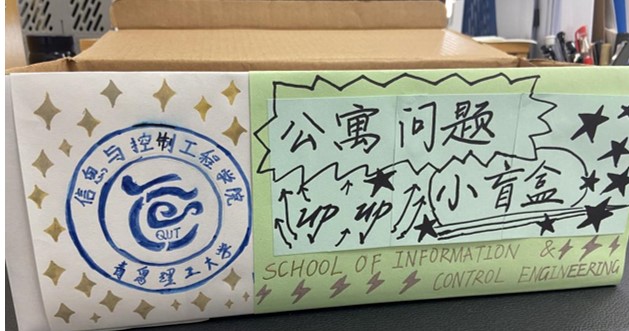 信息与控制工程学院
QUT
青岛理工大学
公寓问题
up up
小盲盒
SCHOOL OF INFORMATION &
CONTROL ENGINEERING